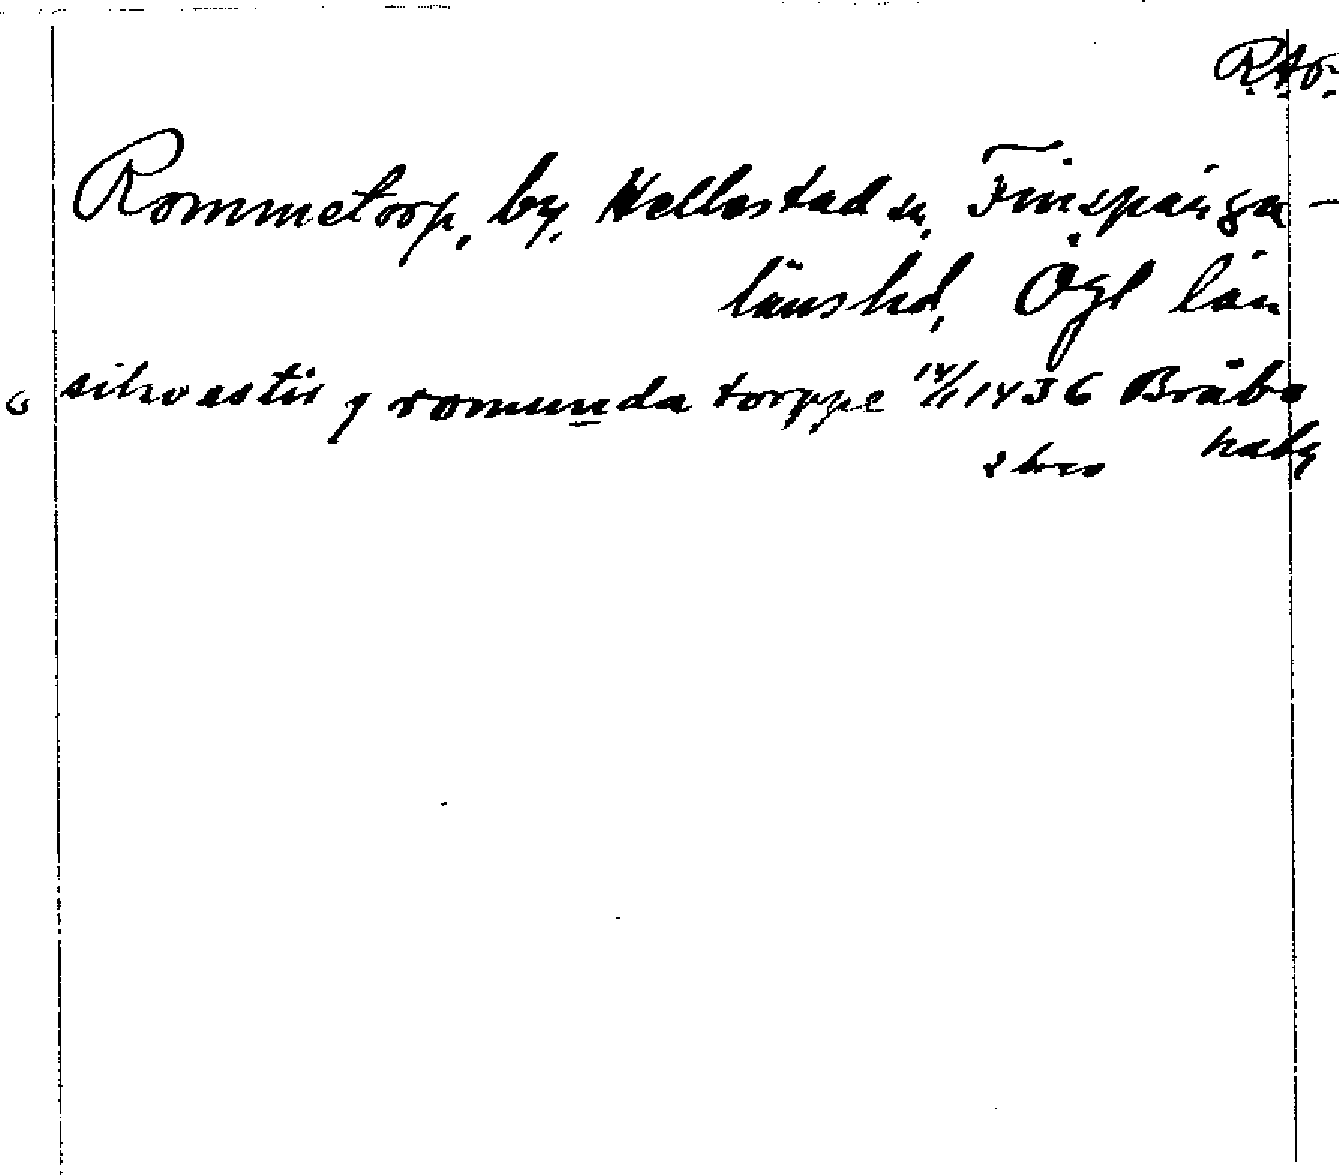 R.A.Ö.
Rommetorp, by, Hellestad sn, Finspånga-
länshd, Ögl län
silvestir j romunda torppe 14/1 1436 Bråbo
2 brev habg